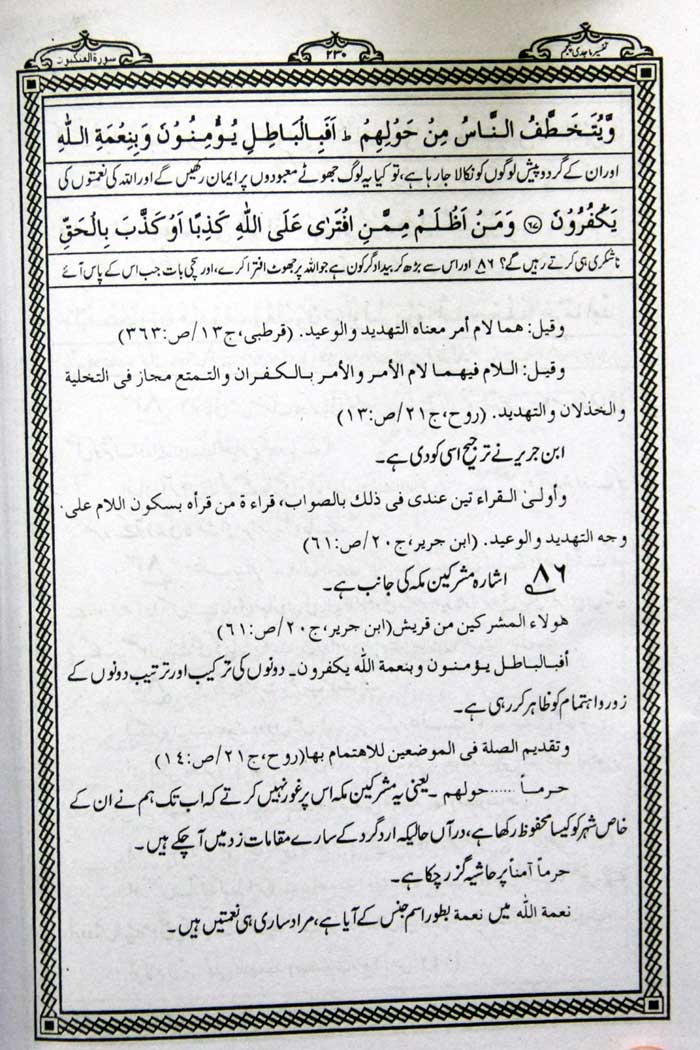 تفسیر ماجدی پنجم
۲۳۰
سورۃ العنکبوت
وَّیُتَخَطَّفُ النَّاسُ مِنْ حَوْلِهِمْ ؕ اَفَبِالْبَاطِلِ یُؤْمِنُوْنَ وَ بِنِعْمَةِ اللّٰهِ
اور ان کے گرد و پیش لوگوں کو نکالا جارہا ہے، تو کیا یہ لوگ جھوٹے معبودوں پر ایمان رکھیں گے اور اللہ کی نعمتوں کی
یَكْفُرُوْنَ ﴿۶۷﴾ وَمَنْ اَظْلَمُ مِمَّنِ افْتَرٰی عَلَی اللّٰهِ كَذِبًا اَوْ كَذَّبَ بِالْحَقِّ
ناشکری ہی کرتے رہیں گے؟ ۸۶ اور اس سے بڑھ کر بیدادگر کون ہے جو اللہ پر جھوٹ افترا کرے، اور سچی بات جب اس کے پاس آئے
وقيل: هما لام أمر معناه التهديد والوعيد. (قرطبی،ج۱۳/ص:۳۶۳)
وقيل: اللام فيهما لام الأمر والأمر بالكفران والتمتع مجاز فی التخلية
والخذلان والتهديد. (روح،ج۲۱/ص:۱۳)
ابن جریر نے ترجیح اسی کو دی ہے۔
وأولیٰ القراء تين عندی فی ذلك بالصواب، قراء ة من قرأه بسكون اللام علی
وجه التهديد والوعيد. (ابن جریر،ج۲۰/ص:۶۱)
۸۶ اشارہ مشرکین مکہ کی جانب ہے۔
هولاء المشركين من قريش(ابن جریر،ج۲۰/ص:۶۱)
أفبالباطل يؤمنون وبنعمة الله يكفرون۔ دونوں کی ترکیب اور ترتیب دونوں کے
زور و اہتمام کو ظاہر کر رہی ہے۔
وتقديم الصلة فی الموضعين للاهتمام بها(روح،ج۲۱/ص:۱۴)
حرماً ...... حولهم ۔ یعنی یہ مشرکین مکہ اس پر غور نہیں کرتے کہ اب تک ہم نے ان کے
خاص شہر کو کیسا محفوظ رکھا ہے، درآں حالیکہ اردگرد کے سارے مقامات زد میں آچکے ہیں۔
حرماً آمناً پر حاشیہ گزر چکا ہے۔
نعمة الله میں نعمة بطور اسم جنس کے آیا ہے، مراد ساری ہی نعمتیں ہیں۔